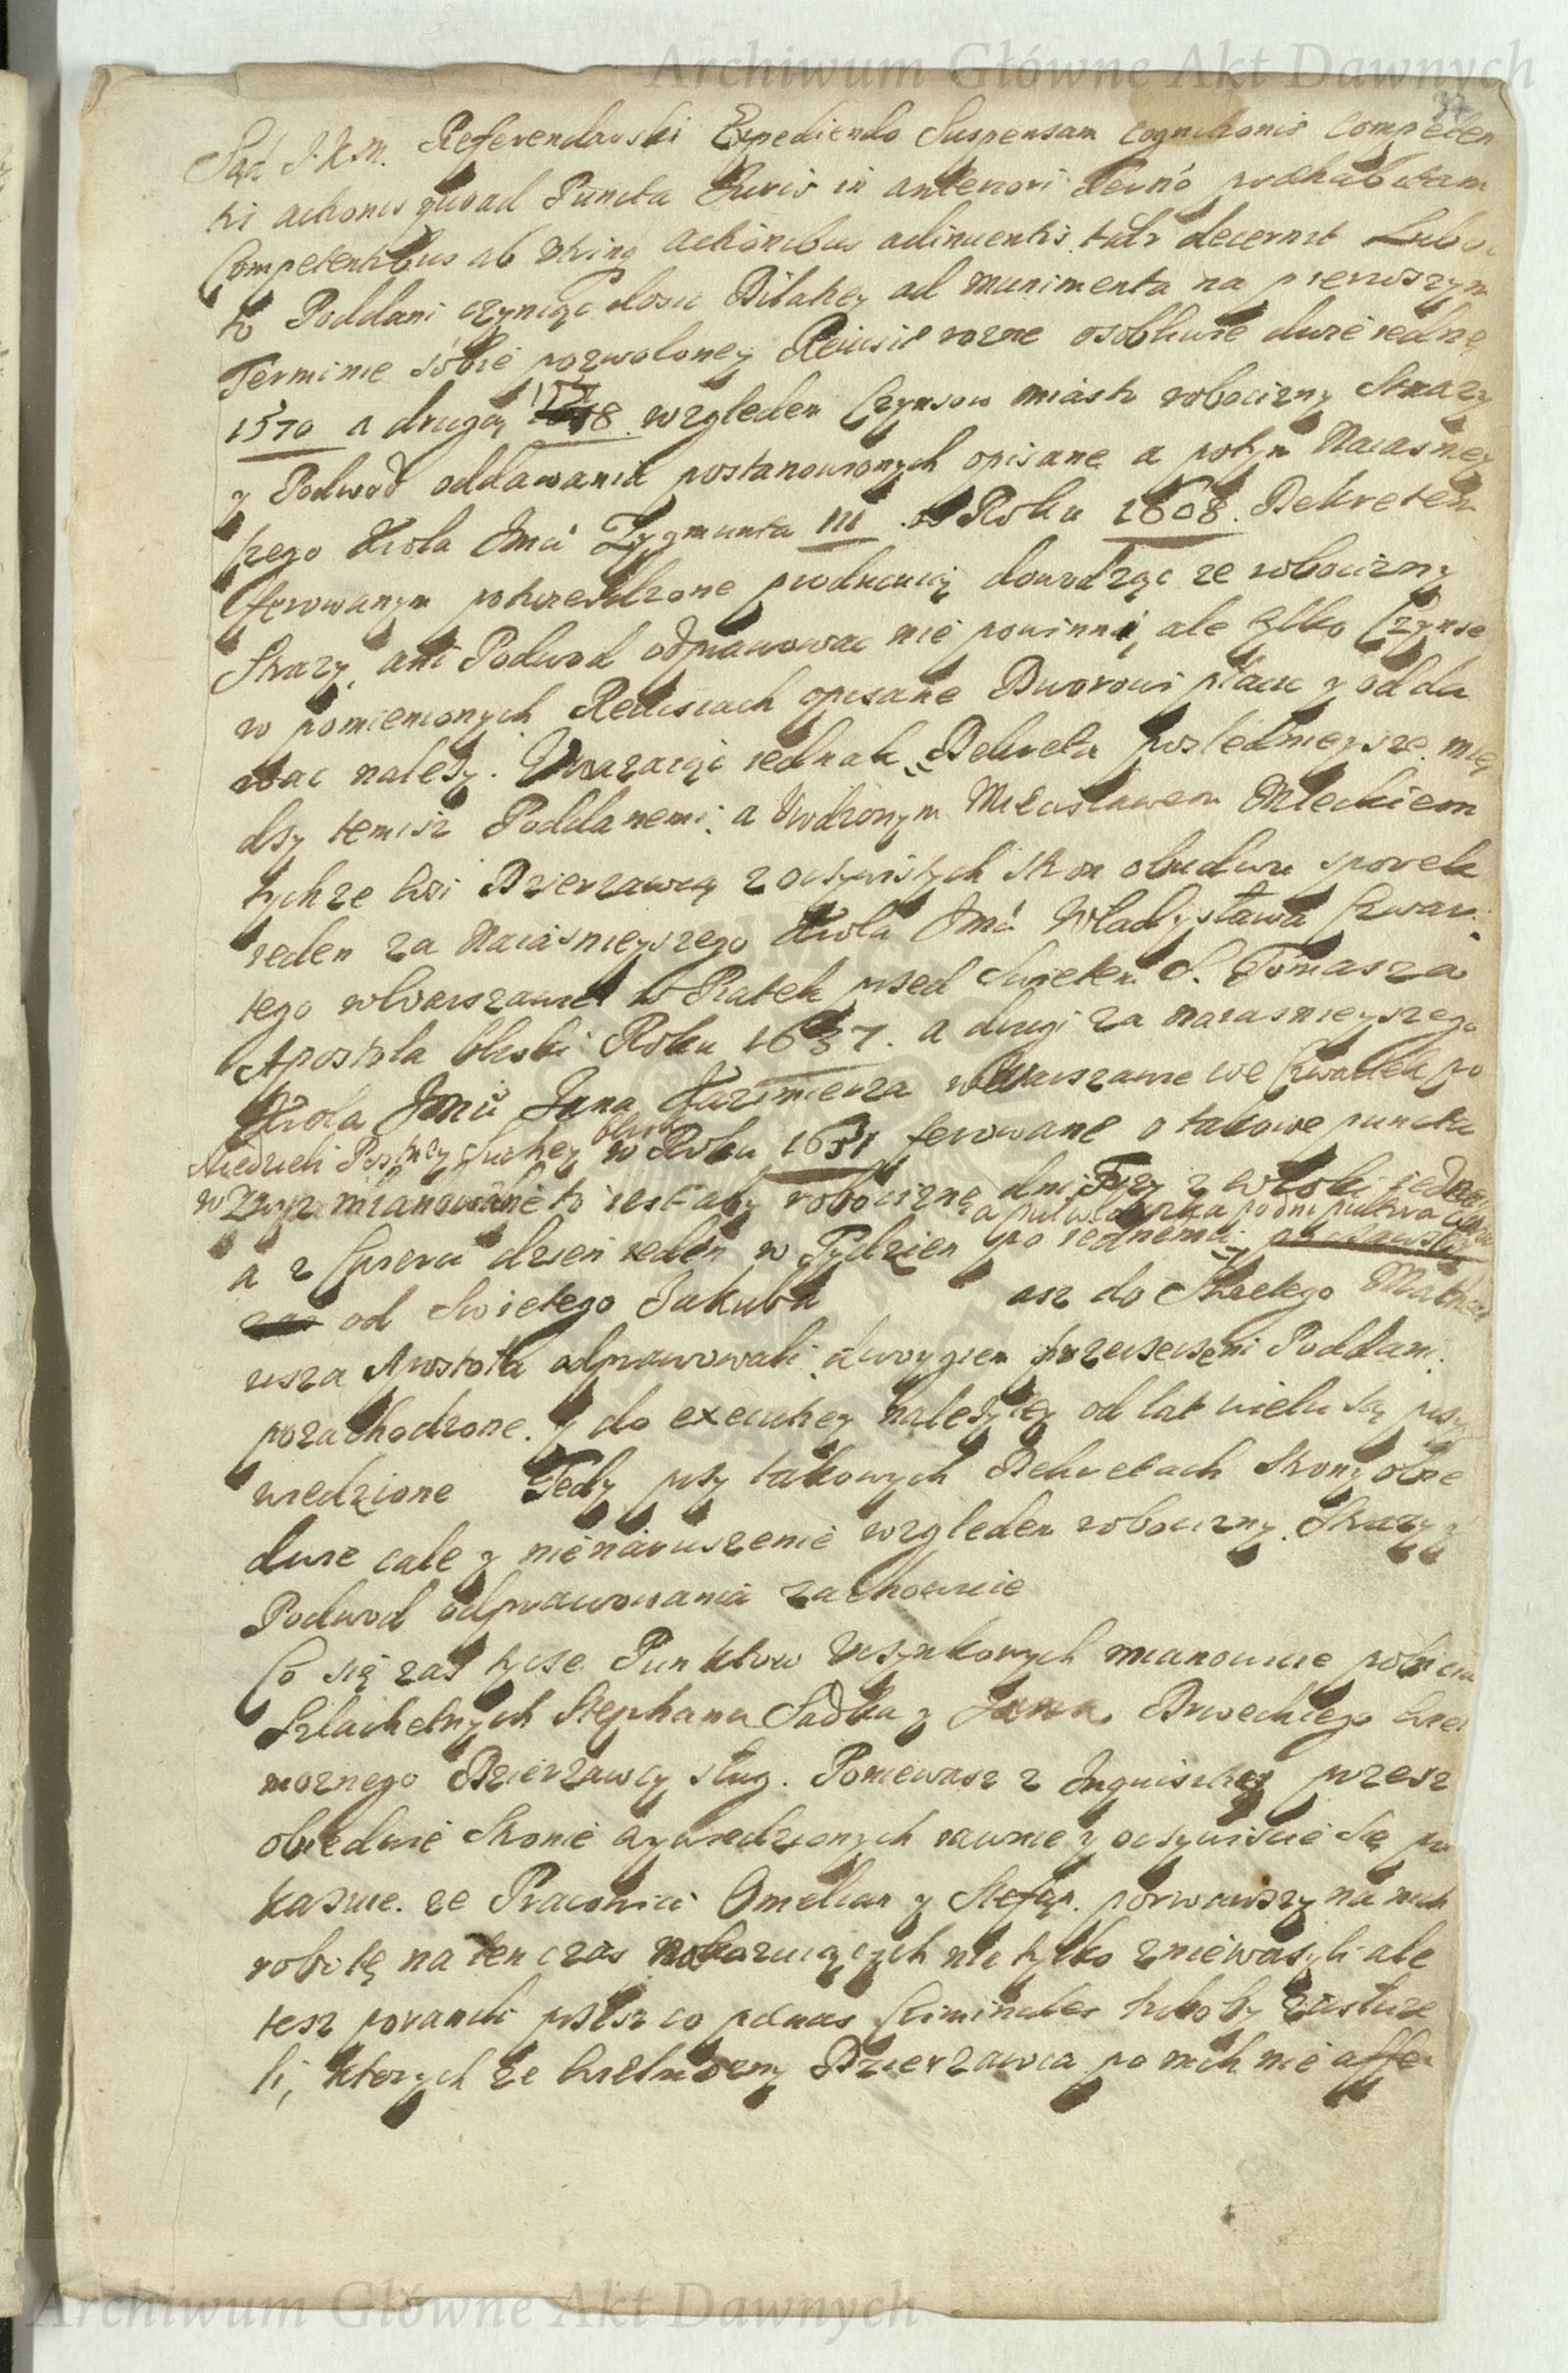 Archiwum Główne Akt Dawnych
37
Sąd J.K.M. Referendarski Expediendo Suspensam cognitionis Competen
ti actionis quoad Puncta Juris in anteriori Termo prohabitam
Competentibus ab utrinq actionibus adinventis talr decernit Lubo
to Poddani czyniąc dosic Dilatiey ad munimenta na pierwszym
Terminie sobie pozwoloney Rewisie rozne osobliwie dwie iedne
1570 a drugą względem Czynszow miasto robocizny Strazy
y Podwod oddawania postanowionych opisane a potym Naiasniey
szego Krola Jmci Zygmunta III Roku 1608. Dekretem
ferowanym potwierdzone producuią dowodząc ze robocizny
Strazy, ani Podwod odprawowac nie powinni, ale tylko Czynsze
w pomienionych Rewisiach opisane Dworowi płacic y odda
wac nalezy. Uwazaiąc iednak Dekreta poslednieysze mię
dzy temisz Poddanemi, a Urodzonym Mieczsławem Mleckiem
tychze wsi Dzierzawcą z oczywistych stron obudwu sporek
ieden za Naiasnieyszego Krola Jmci Władysława Czwar
tego w Warszawie w Piątek przed Swietem S. Tomasza
Apostola bliski Roku 1637. a drugi za naiasnieyszego
Krola Jmci Jana Kazimierza w Warszawie we Czwartek po
Niedzieli Postney Suchey blisko w Roku 1651 ferowane o takowe puncta
w mianowanie to iest aby robociznę dni Trzy z włoki iedney
a pułwłoczka po dni
a z Cwierci dzien ieden w Tydzien po iednemu y
od Swietego Jakuba asz do Swietego Mathe
usza Apostoła odprawowali, dwoygiem przeciwsciem Poddani
pozachodzone. y do executiey nalezytey od lat wielu są przy
wiedzione Tedy przy takowych Dekretach Strony obie
dwie cale y nienaruszenie względem robocizny, Strazy y
Podwod odprawowania zachowuie
Co się zas tycze Punktow Uczynkowych mianowicie pobicia
Szlachetnych Stephana Sadka y Jana Brweckiego wiel
moznego Dzierzawcy sług. Poniewasz z Inquisitiey przesz
obiedwie Stronie wywiedzionych iawnie y oczywiscie się po
kazuie. ze Pracowici Omelian y Stefan porwawszy na nich
robotę na ten czas nakazuiących nie tylko zniewazyli ale
tesz poranili przesz co poenas Criminales luboby zasłuze
li, ktorych ze wielmozny Dzierzawca po nich nie affe
Archiwum Główne Akt Dawnych